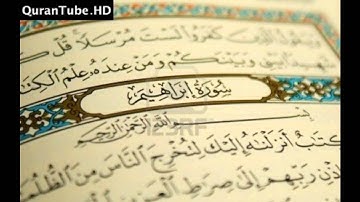 QuranTube.HD
وَيَقُولُ الَّذِينَ كَفَرُوا لَسْتَ مُرْسَلًا قُلْ
شَهِيدًا بَيْنِي وَبَيْنَكُمْ وَمَنْ عِندَهُ عِلْمُ الْكِتَابِ
سُورَةُ إِبْرَاهِيمَ
بِسْمِ اللَّهِ الرَّحْمَٰنِ الرَّحِيمِ
كِتَابٌ أَنزَلْنَاهُ إِلَيْكَ لِتُخْرِجَ النَّاسَ مِنَ الظُّلُمَا
رَبِّهِمْ إِلَىٰ صِرَاطِ الْعَزِيزِ